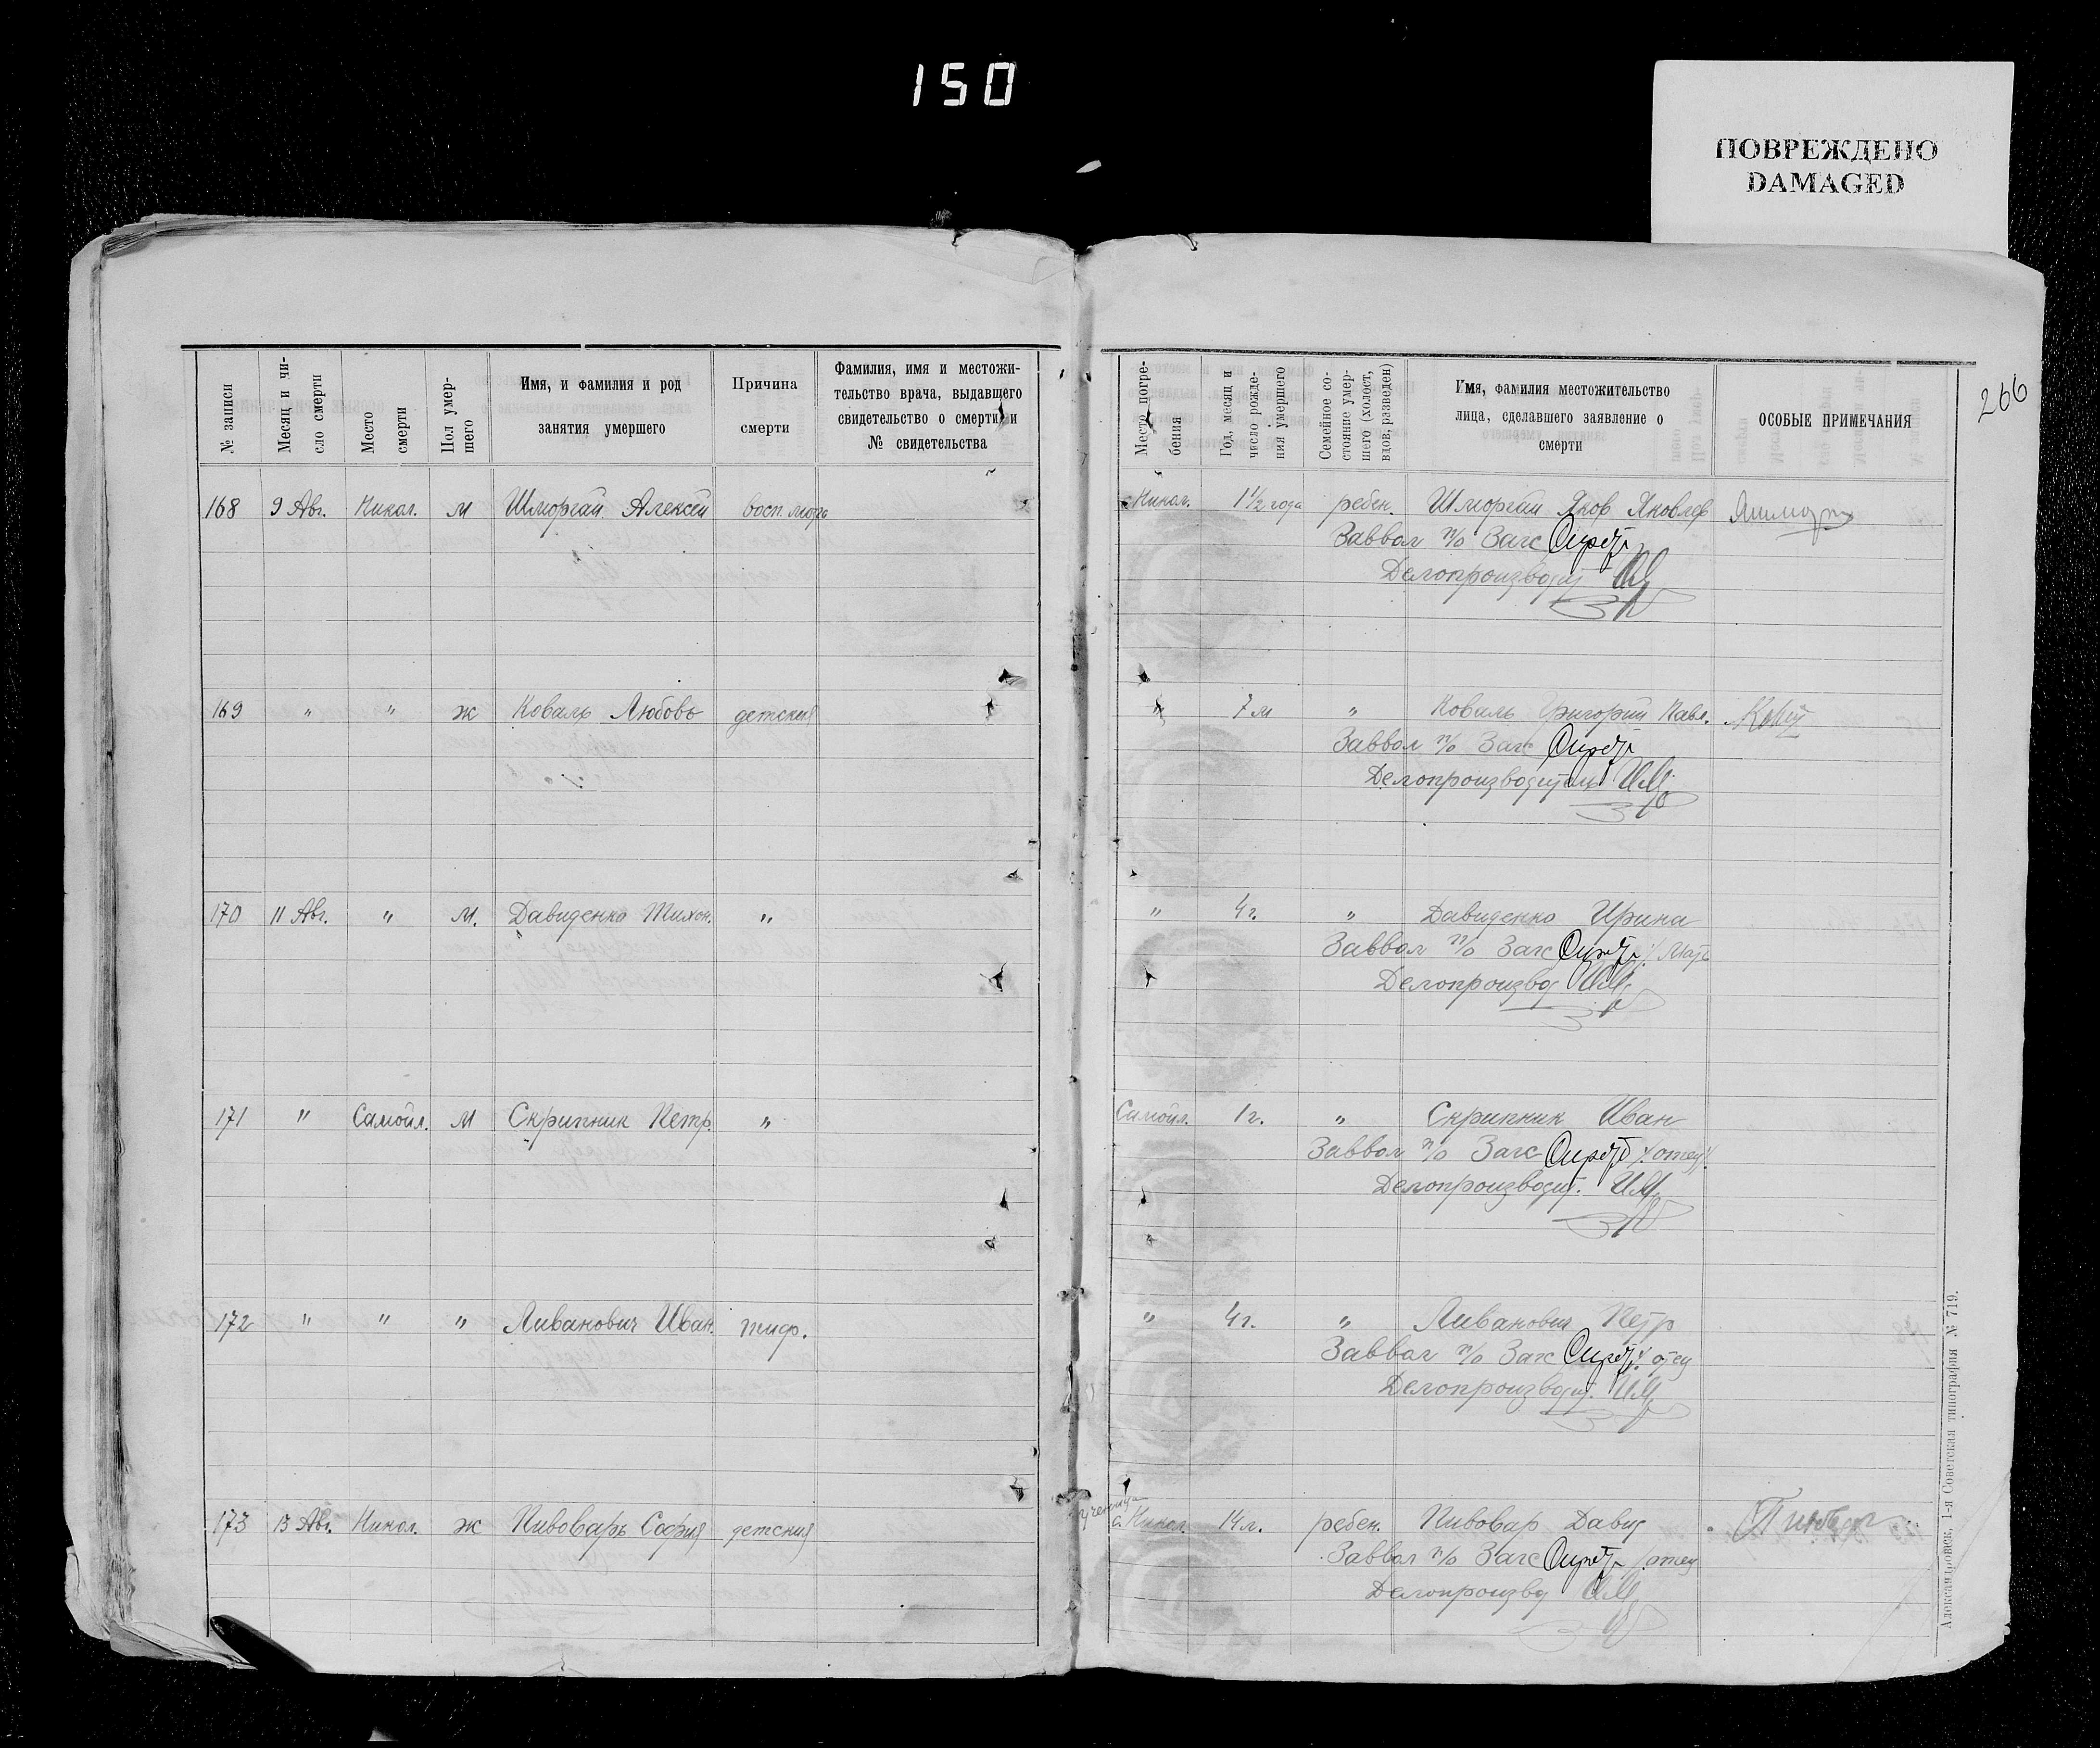 150
ПОВРЕЖДЕНО
DAMAGED
266
№ записи
Месяц и число смерти
Место смерти
Пол умершего
Имя, и фамилия и род занятия умершего
Причина смерти
Фамилия, имя и местожительство врача, выдавшего свидетельство о смерти и № свидетельства
Место погребения
Год, месяц и число рождения умершего
Семейное состояние умершего (холост, вдов, разведен)
Имя, фамилия местожительство лица, сделавшего заявление о смерти
ОСОБЫЕ ПРИМЕЧАНИЯ
168 9 Авг. Никол. м Шморгай Алексей восп. Никол. 1 1/2 года ребен. Шморгай Яков Яковлев
Заввол п/о Загс
Делопроизводит
169 " " ж Коваль Любовь детския " 7 м " Коваль Григорий Павл.
Заввол п/о Загс
Делопроизводитель
170 11 Авг. " м. Давиденко Тихон. " " 4 г. " Давиденко Ирина
Заввол п/о Загс мать
Делопроизвод
171 " Самойл. м Скрипник Петр. " Самойл. 1 г. " Скрипник Иван
Заввол п/о Загс отец
Делопроизводит.
172 " " " Ливанович Иван. тиф. " 4 г. " Ливанович Петр
Заввол п/о Загс отец
Делопроизводит.
173 13 Авг. Никол. ж Пивоваръ София детския с. Никол. 14 л. ребен. Пивовар Давид
Заввол п/о Загс отец
Делопроизвод
Александровск, 1-я Советская типография № 719.